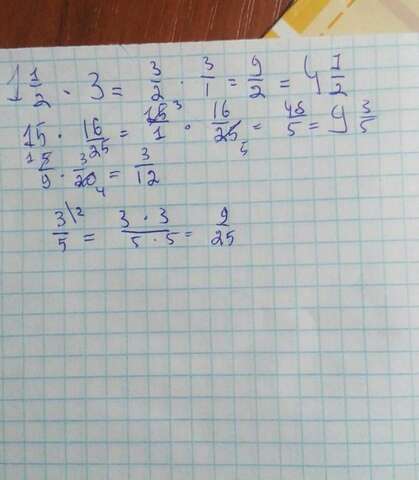 1 1/2 · 3 = 3/2 · 3/1 = 9/2 = 4 1/2
15 · 16/25 = 15 3/1 · 16/25 5 = 48/5 = 9 3/5
1 5/9 · 3/20 4 = 3/12
3/5 \2 = 3 · 3/5 · 5 = 9/25